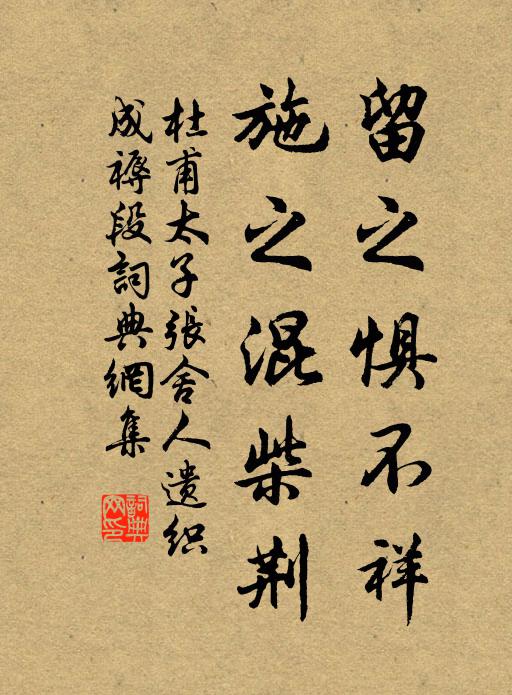 留之惧不祥
施之混柴荆
杜甫太子張舍人遗织
成褥段詞典網集
詞典網印